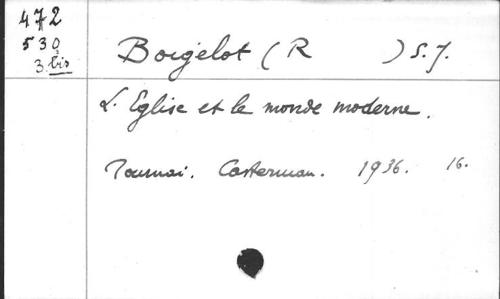 472
530
3 bis
Boigelot (R ) S.J.
L'Eglise et le monde moderne.
Tournai. Casterman. 1936. 16.